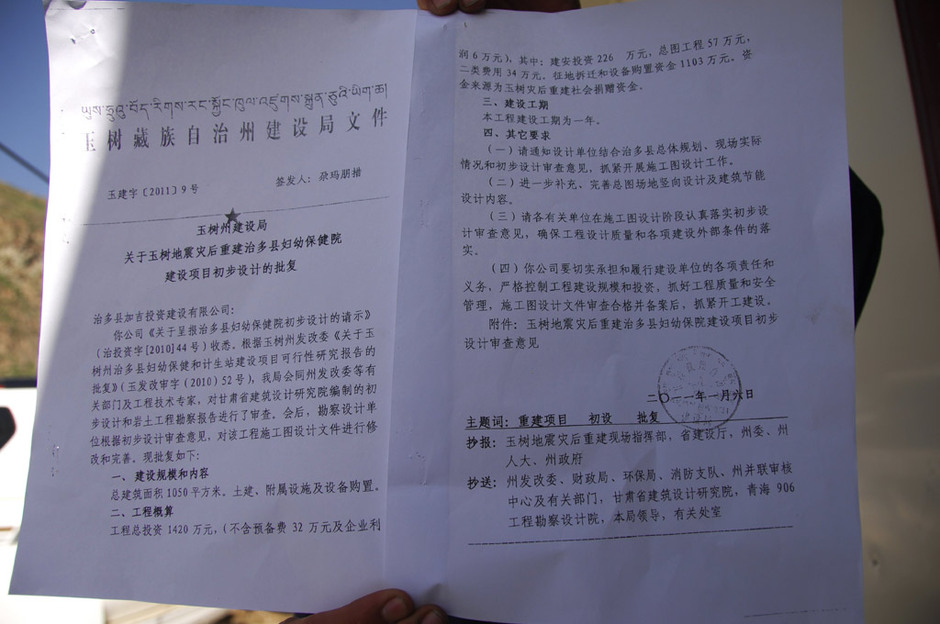 ཡུས་ཧྲུའུ་བོད་རིགས་རང་སྐྱོང་ཁུལ་འཛུགས་སྐྲུན་ཅུའི་ཡིག་ཆ།
玉树藏族自治州建设局文件
玉建字〔2011〕9号 签发人：尕玛朋措
玉树州建设局
关于玉树地震灾后重建治多县妇幼保健院
建设项目初步设计的批复
治多县加吉投资建设有限公司：
你公司《关于呈报治多县妇幼保健院初步设计的请示》
（治投资字[2010]44号）收悉。根据玉树州发改委《关于玉
树州治多县妇幼保健和计生站建设项目可行性研究报告的
批复》（玉发改审字（2010）52号），我局会同州发改委等有
关部门及工程技术专家，对甘肃省建筑设计研究院编制的初
步设计和岩土工程勘察报告进行了审查。会后，勘察设计单
位根据初步设计审查意见，对该工程施工图设计文件进行修
改和完善。现批复如下：
一、建设规模和内容
总建筑面积1050平方米、土建、附属设施及设备购置。
二、工程概算
工程总投资1420万元，（不含预备费32万元及企业利
润6万元），其中：建安投资226 万元，总图工程57万元，
二类费用34万元，征地拆迁和设备购置资金1103万元。资
金来源为玉树灾后重建社会捐赠资金。
三、建设工期
本工程建设工期为一年。
四、其它要求
（一）请通知设计单位结合治多县总体规划、现场实际
情况和初步设计审查意见，抓紧开展施工图设计工作。
（二）进一步补充、完善总图场地竖向设计及建筑节能
设计内容。
（三）请各有关单位在施工图设计阶段认真落实初步设
计审查意见，确保工程设计质量和各项建设外部条件的落
实。
（四）你公司要切实承担和履行建设单位的各项责任和
义务，严格控制工程建设规模和投资，抓好工程质量和安全
管理，施工图设计文件审查合格并备案后，抓紧开工建设。
附件：玉树地震灾后重建治多县妇幼保院建设项目初步
设计审查意见
二〇一一年一月六日
主题词：重建项目 初设 批复
抄报：玉树地震灾后重建现场指挥部，省建设厅，州委、州
人大、州政府
抄送：州发改委、财政局、环保局、消防支队、州并联审核
中心及有关部门，甘肃省建筑设计研究院，青海906
工程勘察设计院，本局领导，有关处室